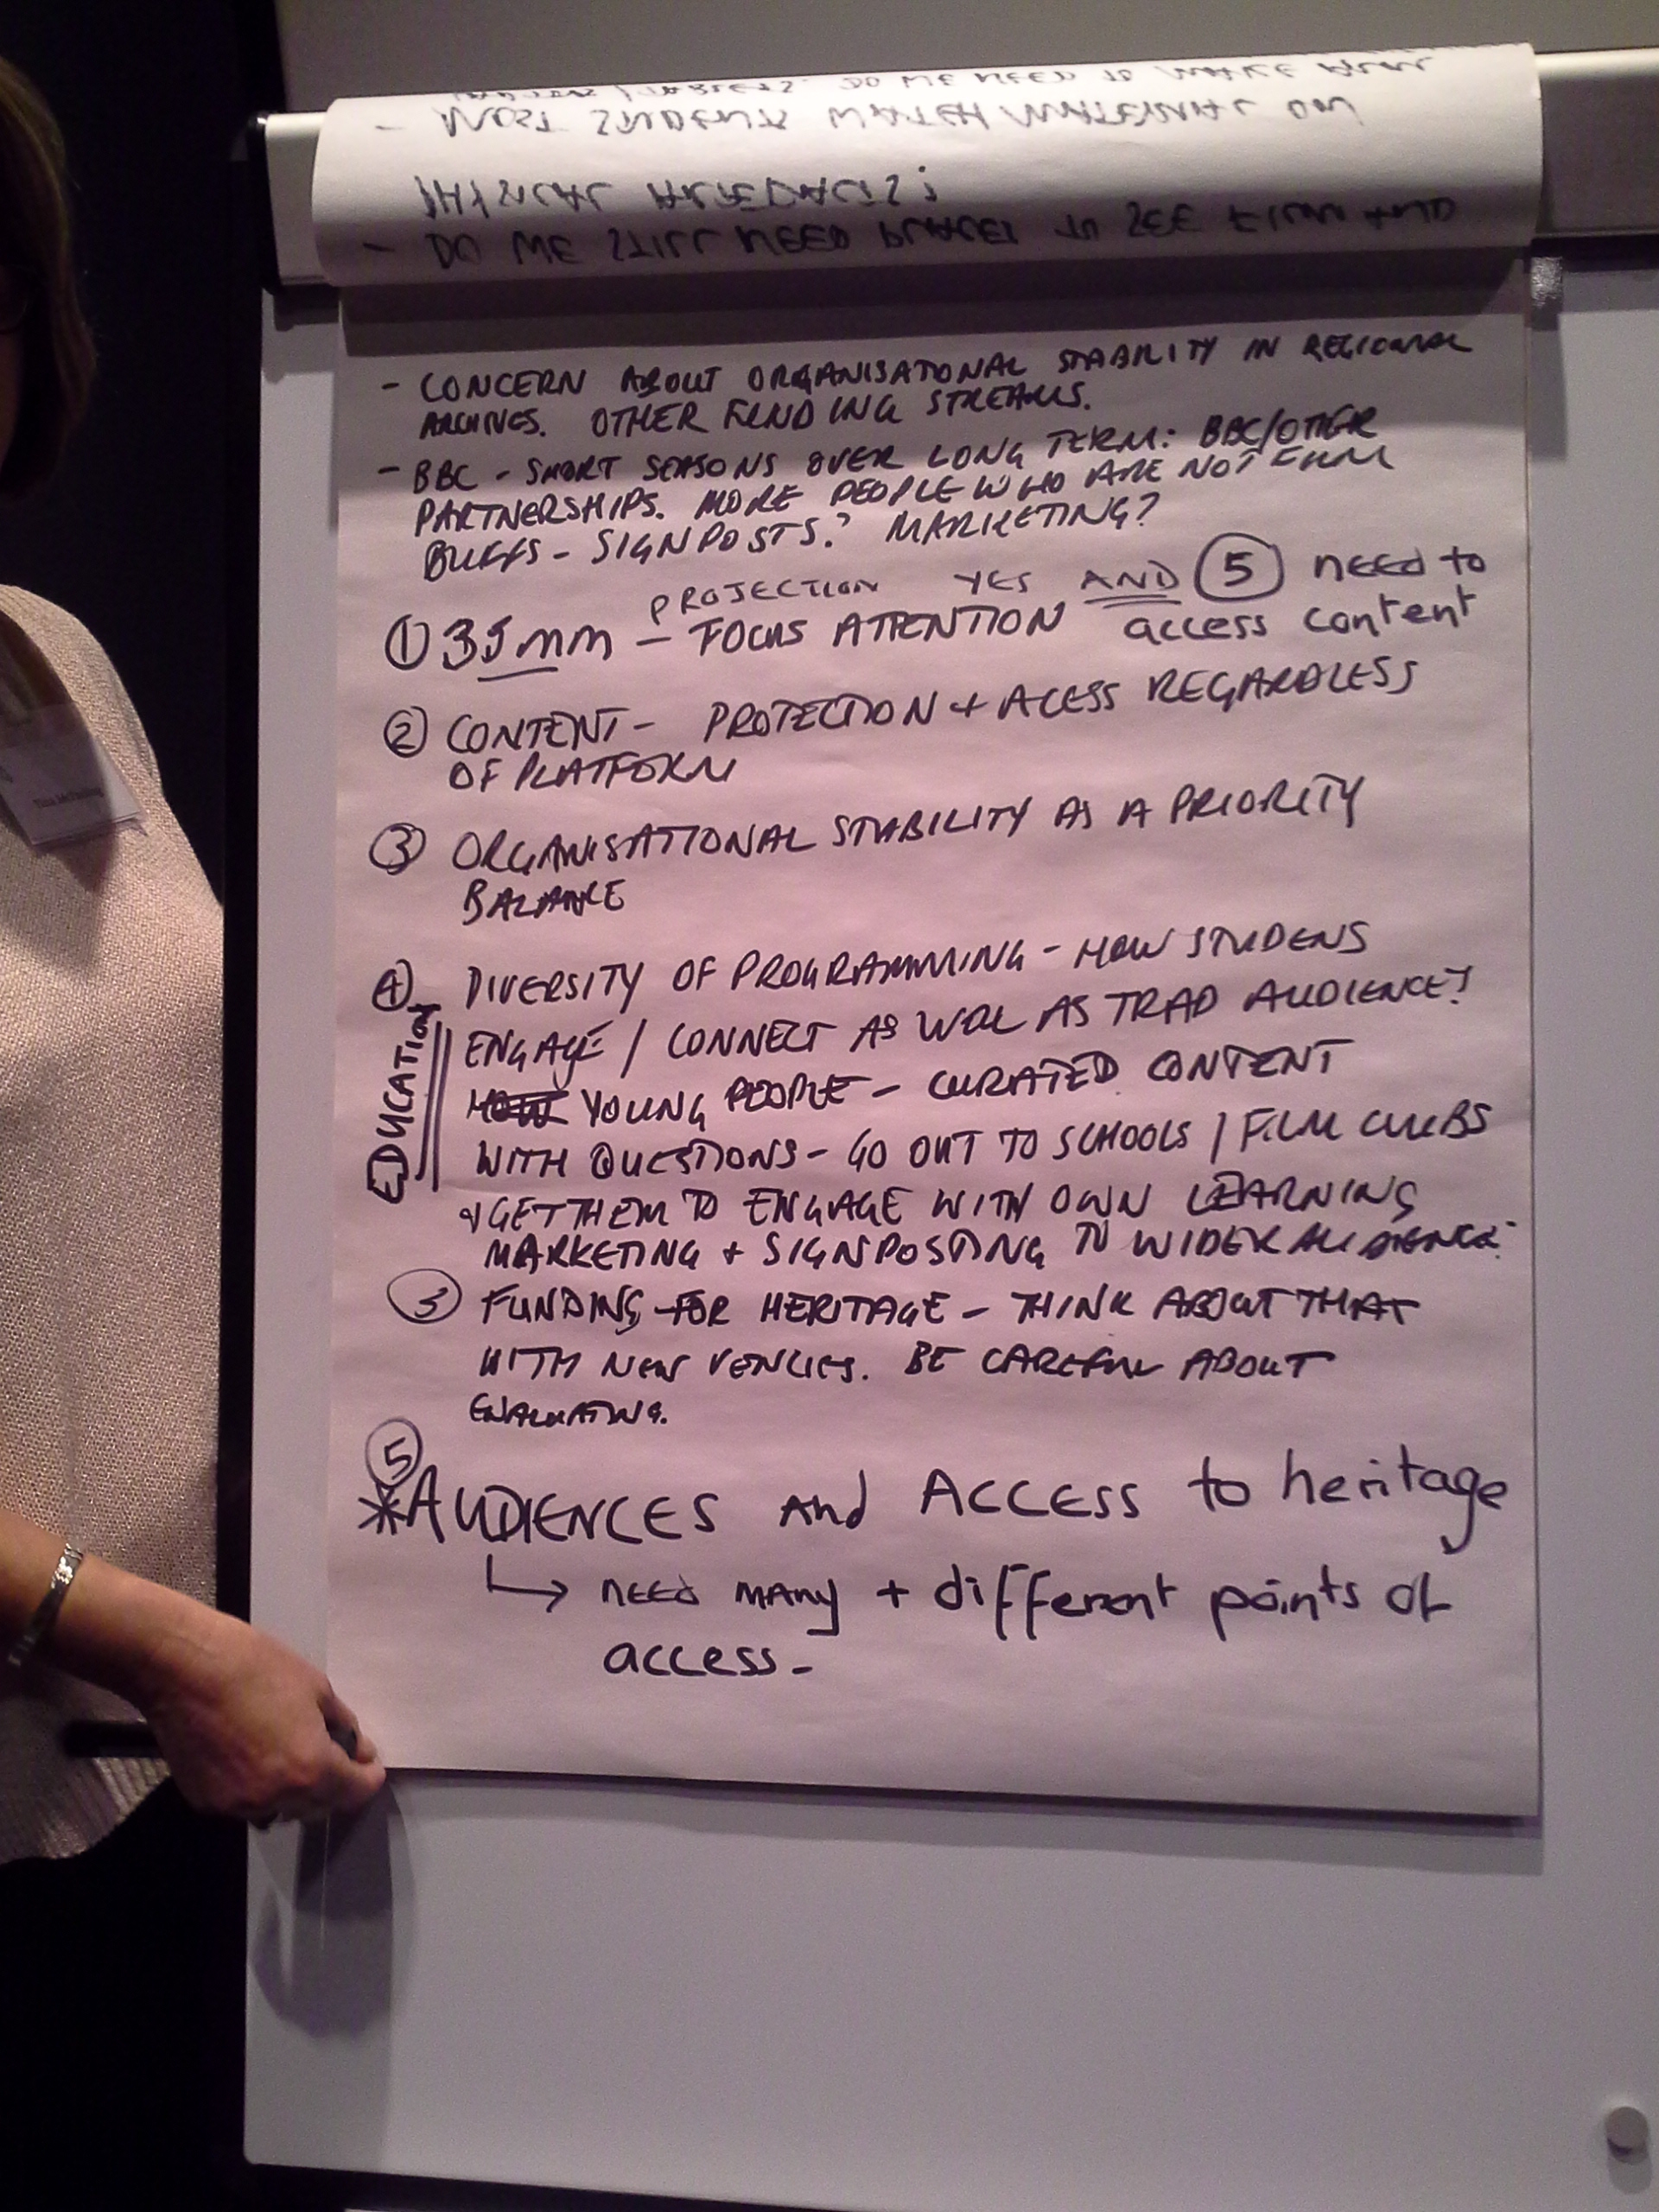 - MOST STUDENTS WATCH MATERIAL ON
- DO WE STILL NEED PLACES TO SEE FILM AND
PHYSICAL ARTEFACTS?
- CONCERN ABOUT ORGANISATIONAL STABILITY IN REGIONAL
ARCHIVES. OTHER FUNDING STREAMS.
- BBC - SHORT SEASONS OVER LONG TERM: BBC/OTHER
PARTNERSHIPS. MORE PEOPLE WHO ARE NOT FILM
BUFFS - SIGNPOSTS? MARKETING?
PROJECTION YES AND ⑤ NEED to
① 35mm - FOCUS ATTENTION access content
② CONTENT - PROTECTION + ACESS REGARDLESS
OF PLATFORM
③ ORGANISATIONAL STABILITY AS A PRIORITY
BALANCE
④ DIVERSITY OF PROGRAMMING - HOW STUDENS
EDUCATION
ENGAGE / CONNECT AS WELL AS TRAD AUDIENCE?
HOW YOUNG PEOPLE - CURATED CONTENT
WITH QUESTIONS - GO OUT TO SCHOOLS / FILM CLUBS
& GET THEM TO ENGAGE WITH OWN LEARNING
MARKETING + SIGNPOSTING TO WIDER AUDIENCE.
③ FUNDING FOR HERITAGE - THINK ABOUT THAT
WITH NEW VENUES. BE CAREFUL ABOUT
EVALUATING.
⑤
*AUDIENCES and ACCESS to heritage
↳ NEED MANy + different points of
access -